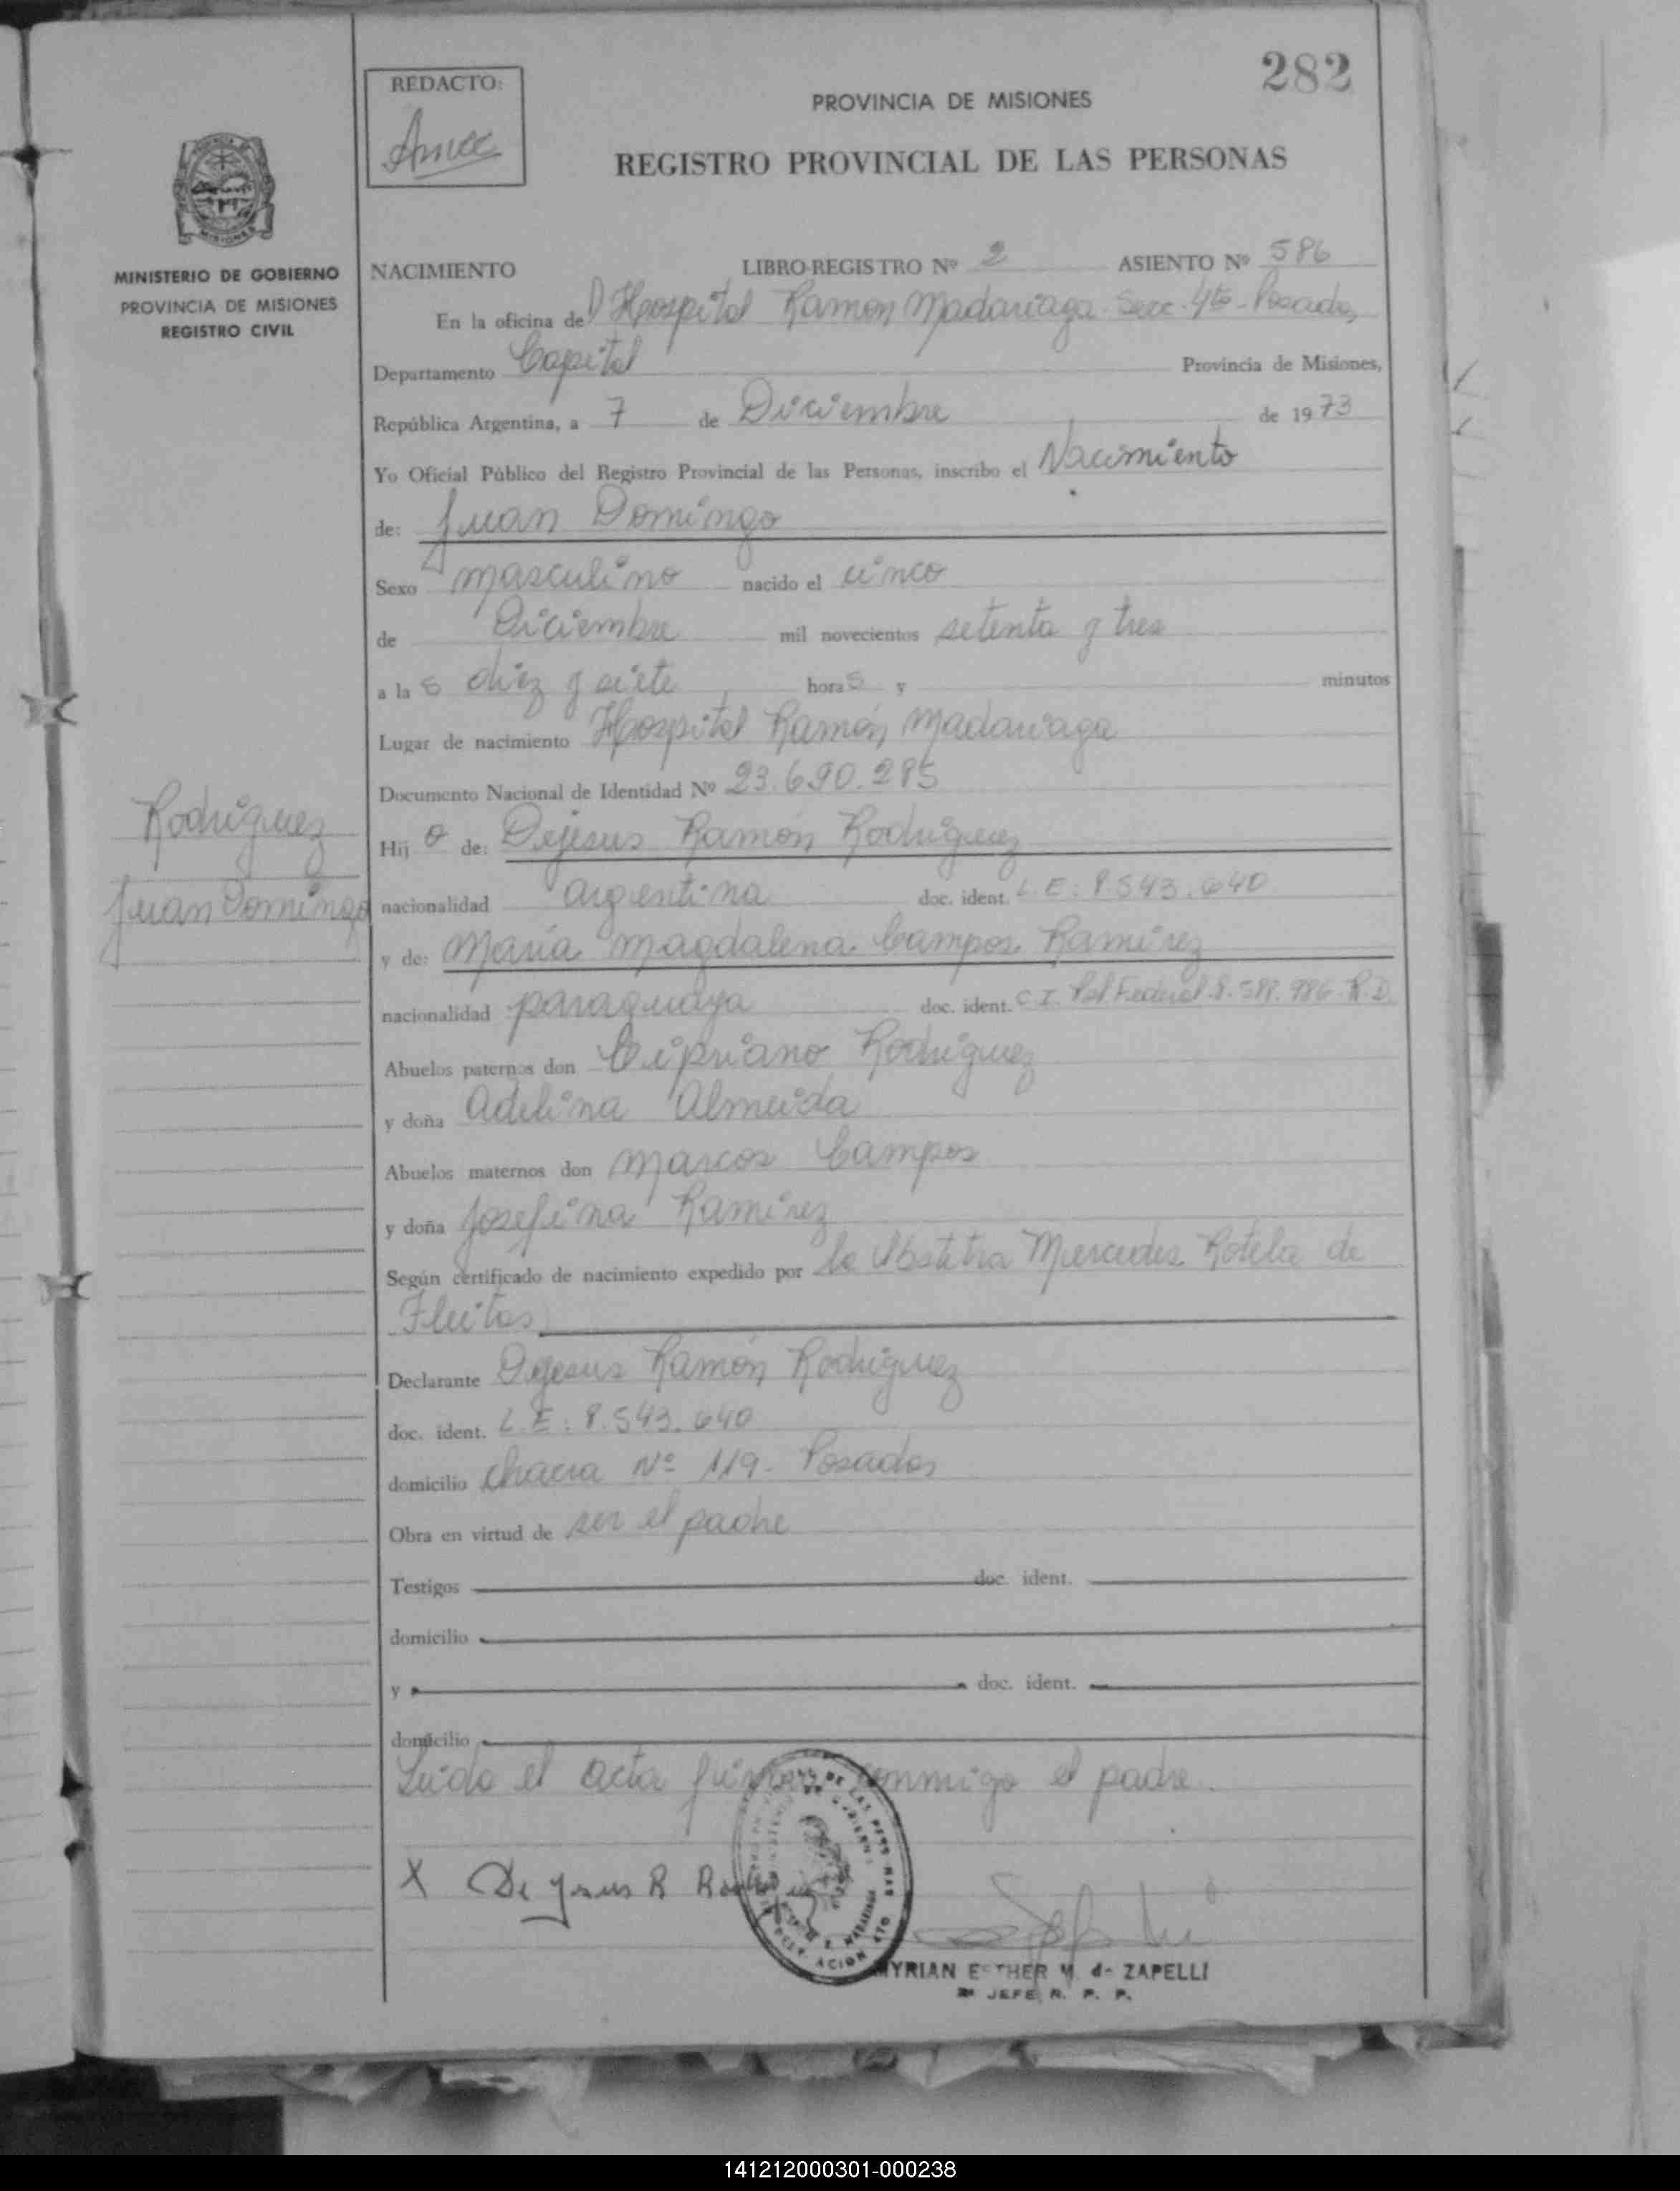 282
REDACTO:
PROVINCIA DE MISIONES
REGISTRO PROVINCIAL DE LAS PERSONAS
MINISTERIO DE GOBIERNO
PROVINCIA DE MISIONES
REGISTRO CIVIL
NACIMIENTO LIBRO-REGISTRO Nº 2 ASIENTO Nº 586
En la oficina del Hospital Ramon Madariaga - Secc. 4ta - Posadas,
Departamento Capital Provincia de Misiones,
República Argentina, a 7 de Diciembre de 1973
Yo Oficial Público del Registro Provincial de las Personas, inscribo el Nacimiento
de: Juan Domingo
Sexo masculino nacido el cinco
de Diciembre mil novecientos setenta y tres
a las diez y siete horas y minutos
Lugar de nacimiento Hospital Ramón Madariaga
Documento Nacional de Identidad Nº 23.690.285
Hijo de: Dejesus Ramón Rodriguez
nacionalidad argentina doc. ident. L.E: 8.543.640
y de: María Magdalena Campos Ramírez
nacionalidad paraguaya doc. ident. C.I. Pol. Federal 8. 986 R.D
Abuelos paternos don Cipriano Rodriguez
y doña Adelina Almeida
Abuelos maternos don Marcos Campos
y doña Josefina Ramirez
Según certificado de nacimiento expedido por la Obstetra Mercedes Rotela de
Fleitas
Declarante Dejesus Ramón Rodriguez
doc. ident. L.E: 8.543.640
domicilio chacra Nº 119 - Posadas
Obra en virtud de ser el padre
Testigos doc. ident.
domicilio
y doc. ident.
domicilio
Leida el acta firma conmigo el padre.
X De Jesus R
MYRIAN ESTHER M. de ZAPELLI
JEFE R. P. P.
Rodriguez
Juan Domingo
141212000301-000238